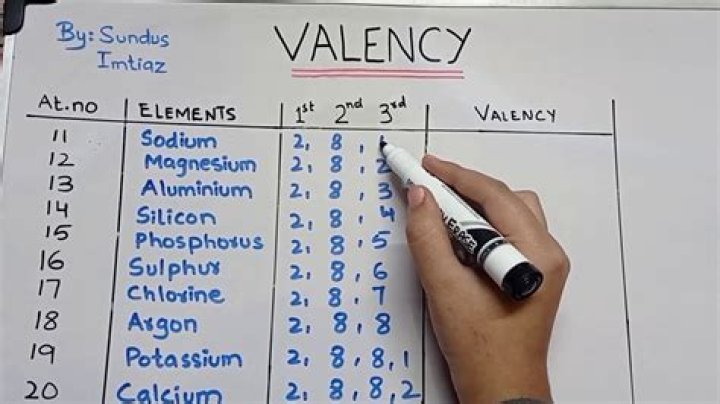 By: Sundus
Imtiaz
VALENCY
At.no ELEMENTS 1st 2nd 3rd VALENCY
11 Sodium 2, 8,
12 Magnesium 2, 8, 2
13 Aluminium 2, 8, 3
14 Silicon 2, 8, 4
15 Phosphorus 2, 8, 5
16 Sulphur 2, 8, 6
17 Chlorine 2, 8, 7
18 Argon 2, 8, 8
19 Potassium 2, 8, 8, 1
20 Calcium 2, 8, 8, 2